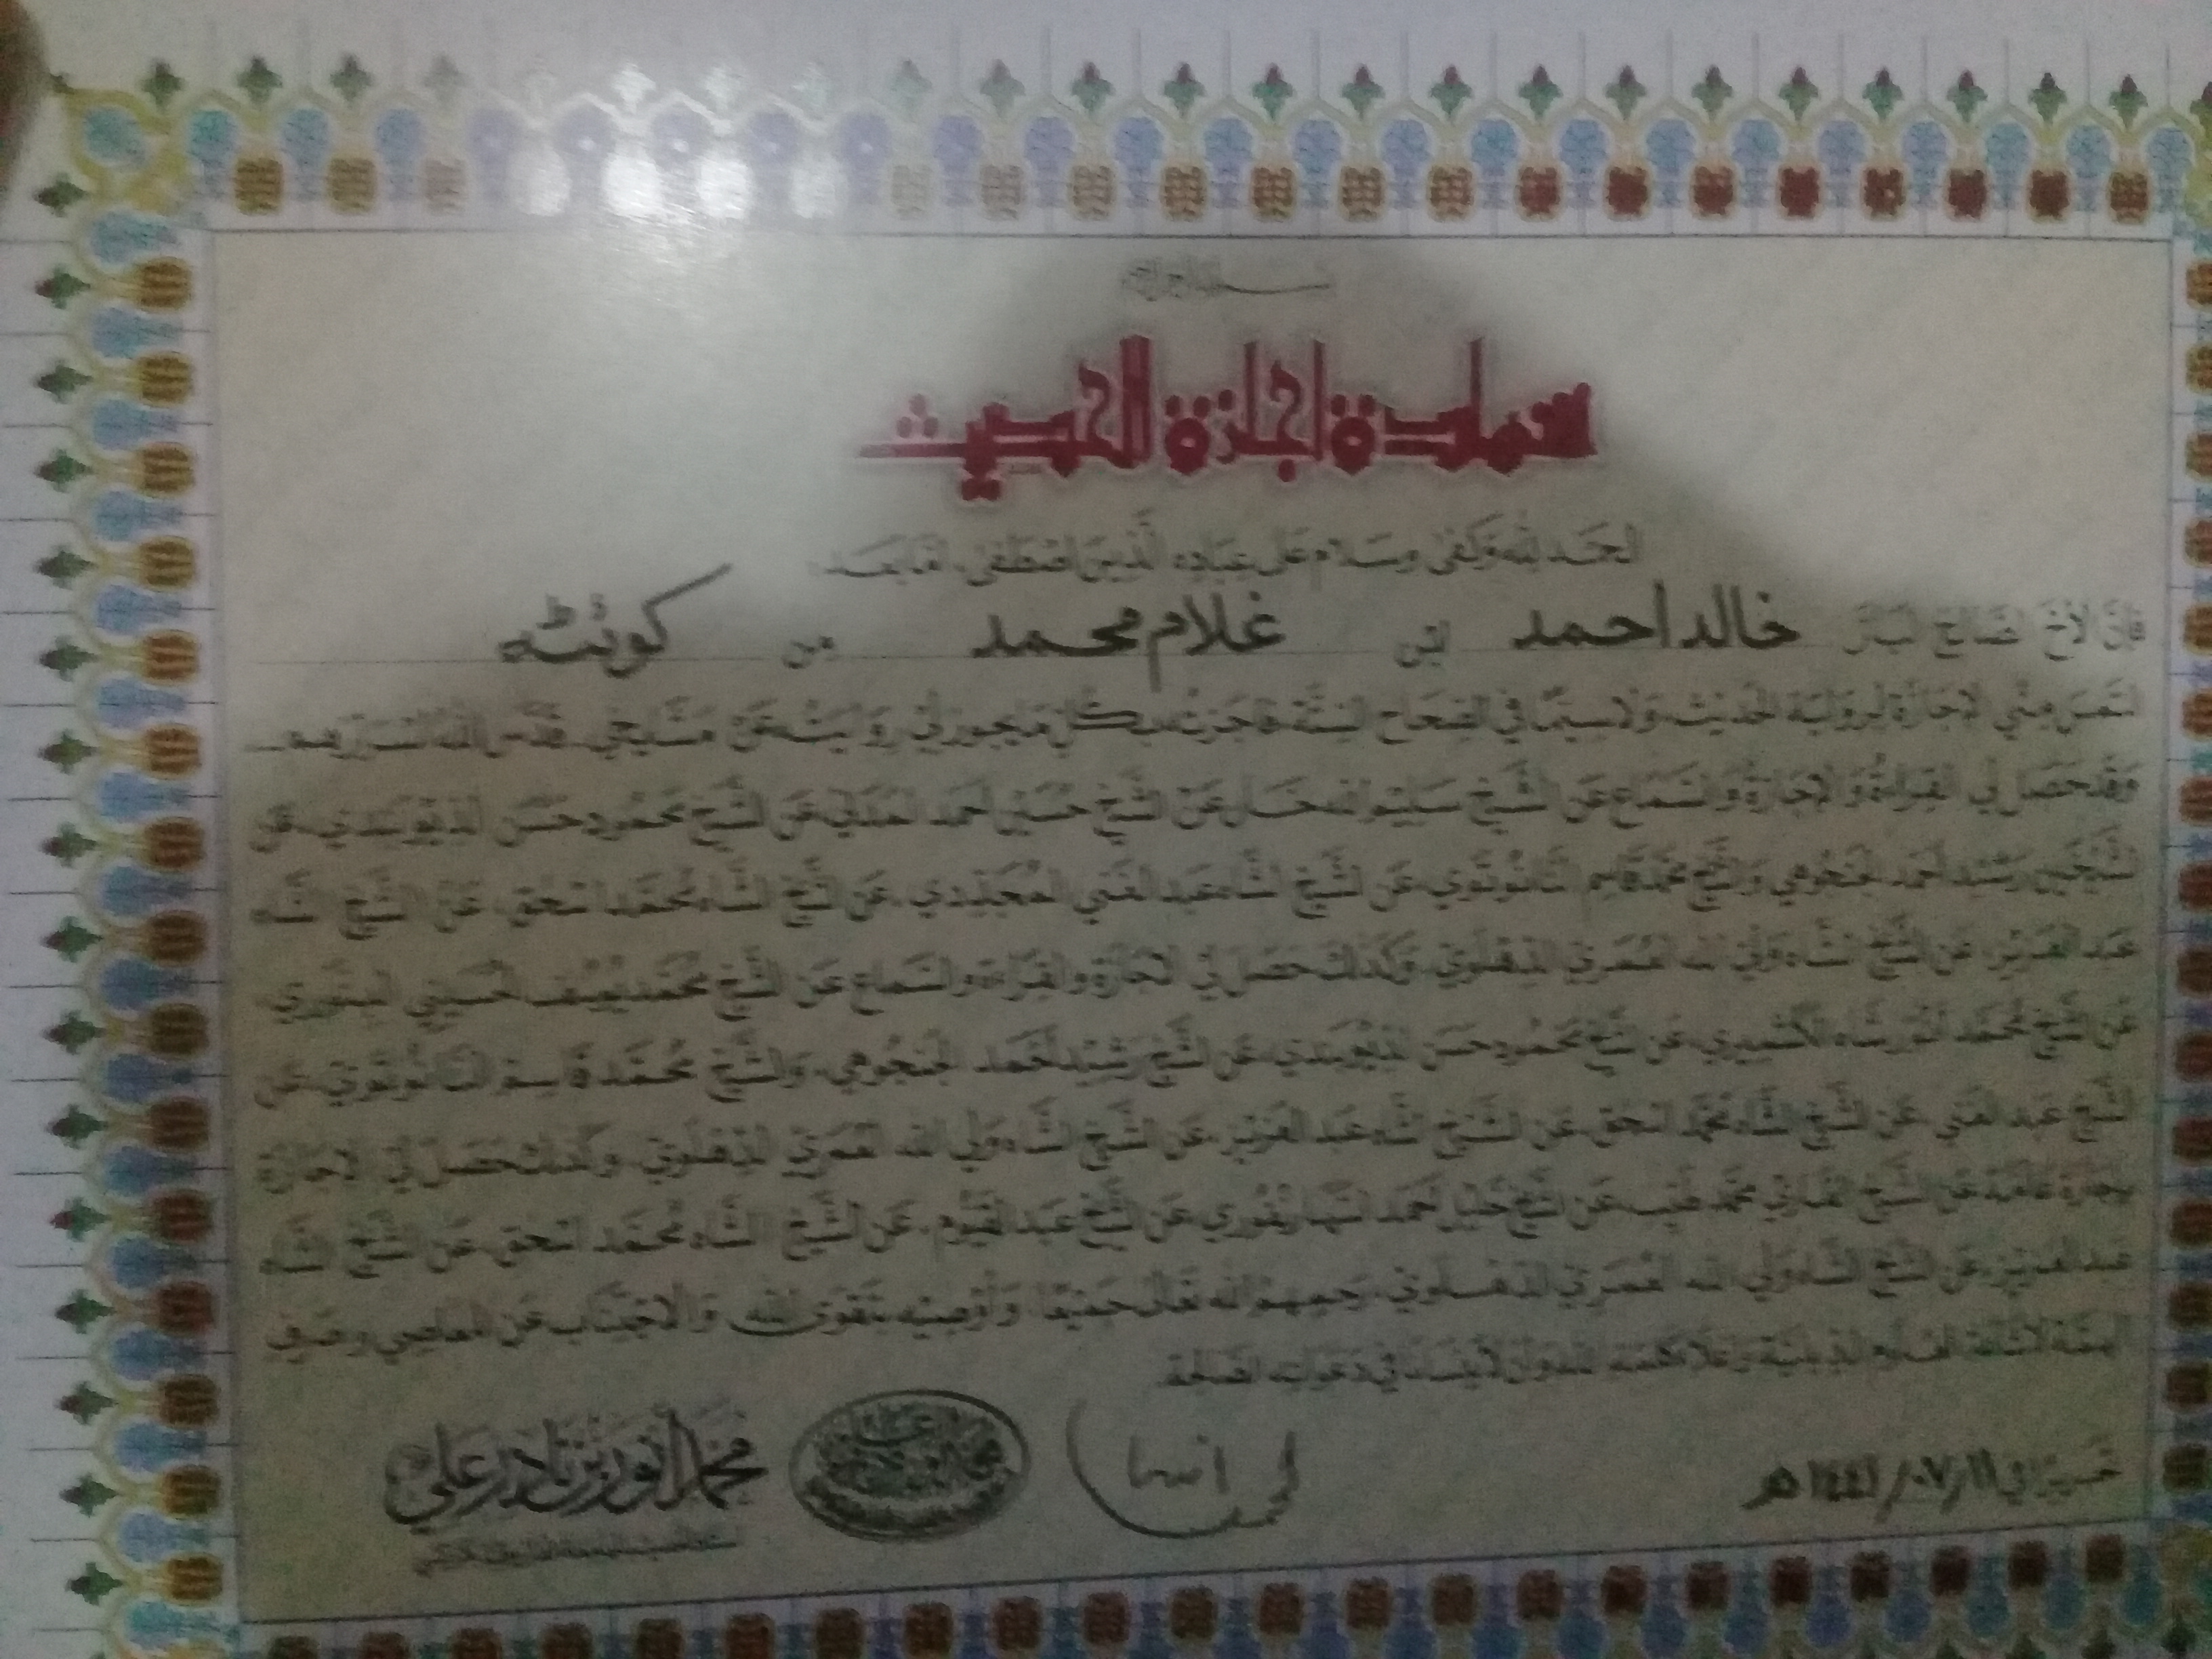 شهادة إجازة الحديث
الحمد لله وكفى وسلام على عباده الذين اصطفى، أما بعد:
فإن الأخ الصالح خالد احمد ابن غلام محمد من كوئٹه
التمس مني الإجازة لرواية الحديث ولاسيما في الصحاح الستة فأجزته بكل ما يجوز لي روايته عن مشايخي قدس الله أسرارهم
وقد حصل لي القراءة والإجازة والسماع عن الشيخ سليم الله خان عن الشيخ حسين أحمد المدني عن الشيخ محمود حسن الديوبندي، عن
الشيخين رشيد أحمد الجنجوهي والشيخ محمد قاسم النانوتوي، عن الشيخ الشاه عبد الغني المجددي، عن الشيخ الشاه محمد اسحق، عن الشيخ الشاه
عبد العزيز، عن الشيخ الشاه ولي الله العمري الدهلوي، وكذلك حصل لي الإجازة والقراءة والسماع عن الشيخ محمد يوسف الحسيني البنوري،
عن الشيخ محمد أنور شاه الكشميري، عن شيخ محمود حسن الديوبندي، عن الشيخ رشيد أحمد الجنجوهي، والشيخ محمد قاسم النانوتوي، عن
الشيخ عبد الغني، عن الشيخ الشاه محمد اسحق، عن الشيخ الشاه عبد العزيز، عن الشيخ الشاه ولي الله العمري الدهلوي، وكذلك حصل لي الإجازة
إجازة عامة عن الشيخ القاري محمد طيب، عن الشيخ خليل أحمد السهارنفوري، عن الشيخ عبد القيوم، عن الشيخ الشاه محمد اسحق، عن الشيخ الشاه
عبد العزيز، عن الشيخ الشاه ولي الله العمري الدهلوي، رحمهم الله تعالى جميعا، وأوصيه بتقوى الله والاجتناب عن المعاصي وصرف
الهمة لإشاعة العلوم الدينية وإعلاء كلمة الله وأن لا ينساني في دعواته الصالحة
تحريرا في ١١/٠٧/١٤٤١هـ
محمد أنور بن نادر علي